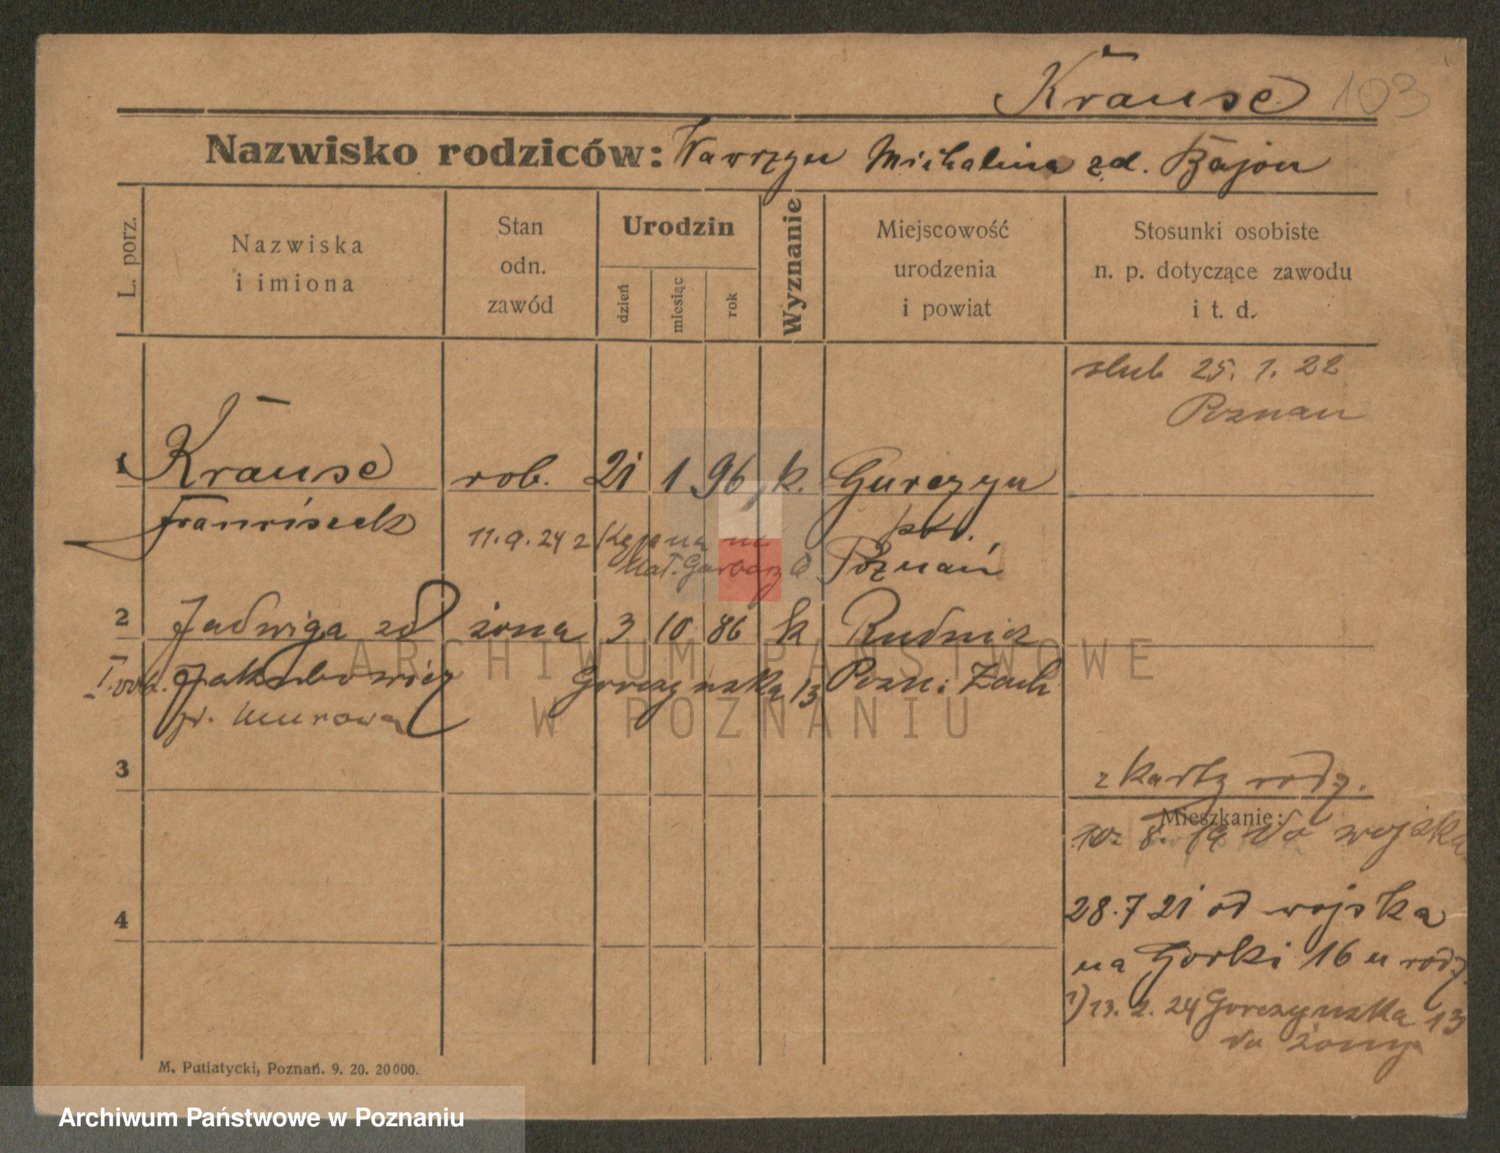 Krause 103
Nazwisko rodziców: Wawrzyn Michalina zd. Bajon
L. porz.
Nazwiska
i imiona
Stan
odn.
zawód
Urodzin
dzień
miesiąc
rok
Wyznanie
Miejscowość
urodzenia
i powiat
Stosunki osobiste
n. p. dotyczące zawodu
i t. d.
slub 25. 1. 22
Poznan
1 Krause rob. 21 1 96 k. Gurczyn
Franciszek pow.
11. 9. 24 z
Mał. Garbary 6 Poznań
2 Jadwiga zd żona 3 10 86 k Rudnicz
Jakubowicz Gorczynska 13 Pozn. Zach
Murowa
3
z karty rodz.
Mieszkanie:
8. 19 do wojska
28. 7 21 od wojska
4
na Gorki 16 u rodz.
1) 13. 2. 24 Gorczynska 13
do żony
M. Putiatycki, Poznań. 9. 20. 20000.
ARCHIWUM PAŃSTWOWE
W POZNANIU
Archiwum Państwowe w Poznaniu